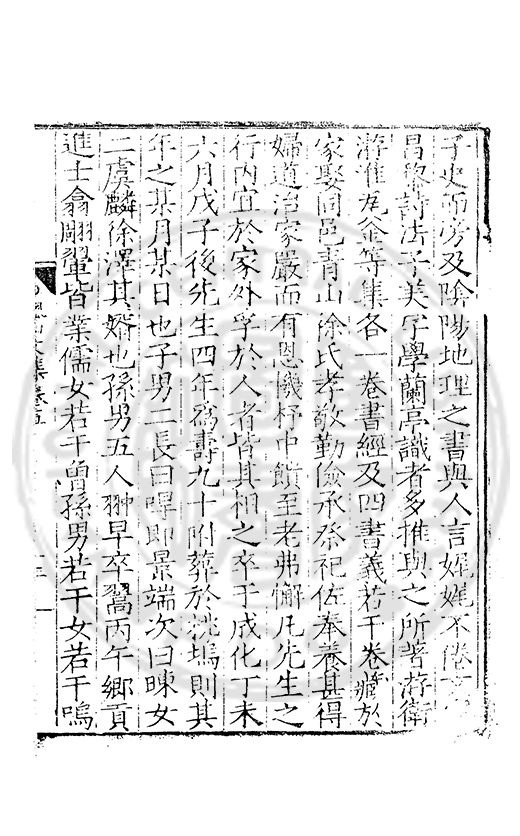 子史而旁及陰陽地理之書與人言娓娓不倦文
昌黎詩法子美字學蘭亭識者多推與之所著游衛
游淮瓦釜等集各一卷書經及四書義若干卷藏於
家娶同邑青山徐氏孝敬勤儉承祭祀佐奉養甚得
婦道治家嚴而有恩機杼中饋至老弗懈凡先生之
行內宜於家外孚於人者皆其相之卒于成化丁未
六月戊子後先生四年爲壽九十附葬於桃塢則其
年之某月某日也子男二長曰暉即景端次曰暕女
二虞麟徐澤其婿也孫男五人翀早卒翯丙午鄉貢
進士翕翮翬皆業儒女若干曾孫男若干女若干嗚
文集卷五